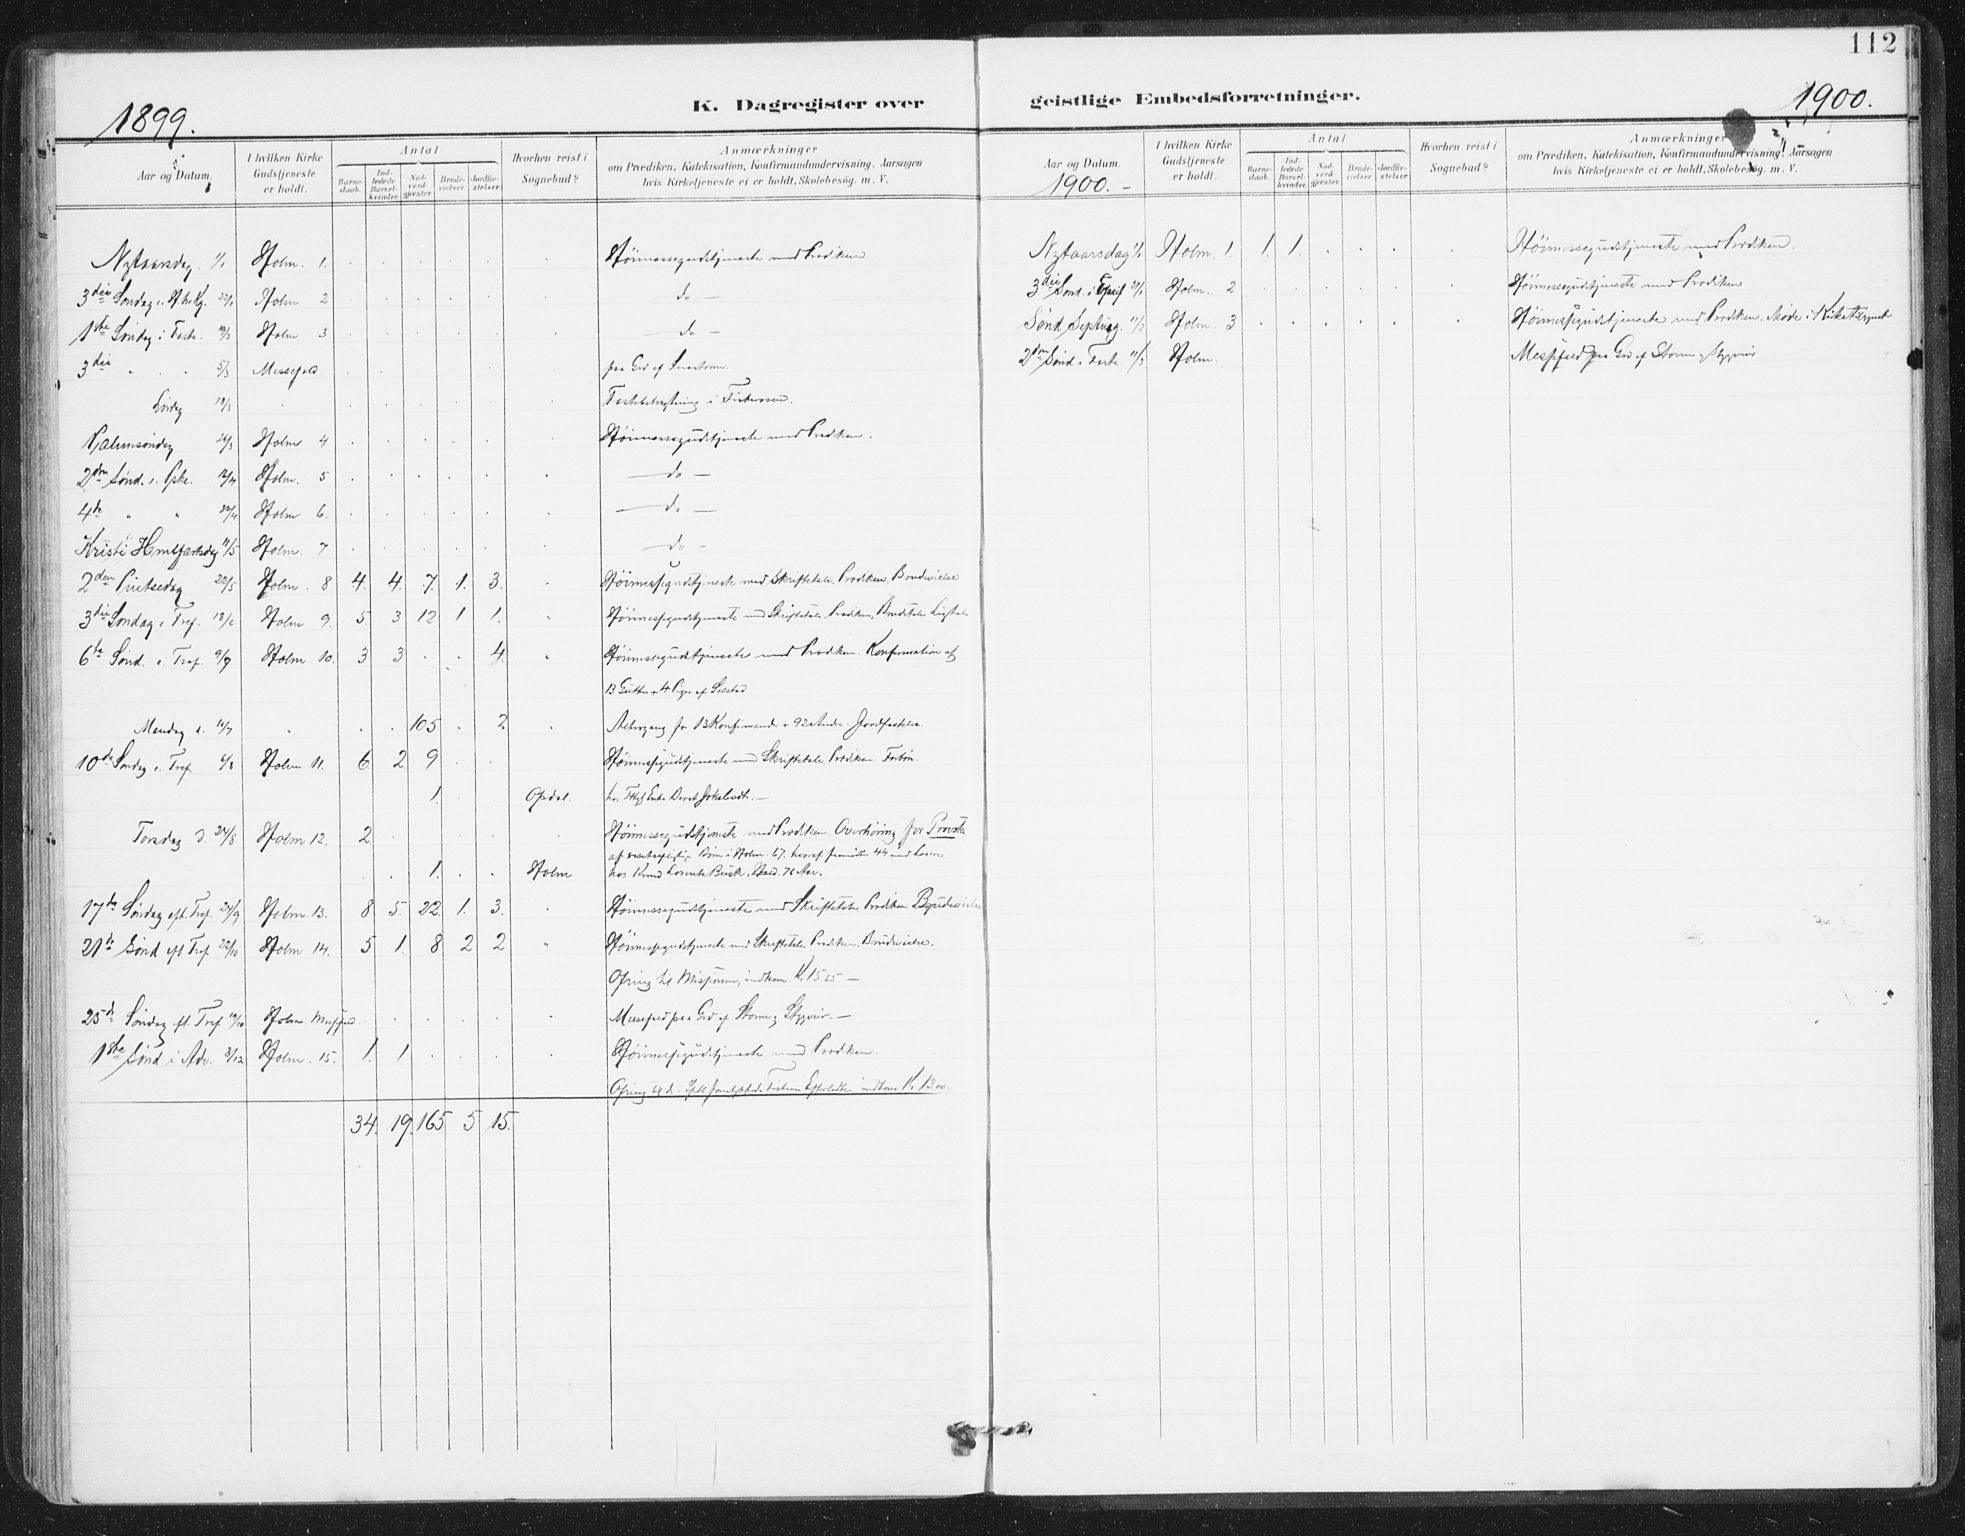 112
1899.
K. Dagregister over
geistlige Embedsforretninger.
1900.
Aar og Datum.
I hvilken Kirke Gudstjeneste er holdt.
Antal
Barnedaab.
Indledede Barselkvinder.
Nadverdgjester.
Brudevielser.
Jordfæstelser.
Hvorhen reist i Sognebud?
Anmærkninger
om Prædiken, Katekisation, Konfirmandundervisning, Aarsagen
hvis Kirketjeneste ei er holdt, Skolebesøg. m. V.
Nytaarsdag 1/1 Holm. 1. Höimessegudstjeneste med Prædiken
3die Søndag 22/1 Holm 2 do —
1ste Søndag i Faste 19/2 Holm 3 do —
3die " " 5/3 Messefald paa Grd af
Lördag 18/3
Palmesöndag 26/3 Holm 4 Höimessegudstjeneste med Prædiken.
2den Sönd. e. Pske. 16/4 Holm. 5 do —
4de " " 30/4 Holm 6. do —
Kristi Himlfartsdag 11/5 Holm. 7 do —
2den Pintsedag 22/5 Holm. 8 4. 4. 7. 1. 3. " Höimessegudstjeneste med Skriftetale, Prædiken, Brudevielse
3die Søndag e. Tref. 18/6 Holm 9. 5. 3 12 1 1. " Höimessegudstjeneste med Skriftetale Prædiken, Brudetale Ligtale
6te Sönd. e. Tref. 9/7 Holm 10. 3 3 . . 4. " Höimessegudstjeneste med Prædiken. Konfirmation af
13 Gutter + 4 Piger af
Mandag d. 10/7 " . . 105 . 2 " Altergang for 13 Konfirmander + 92 Andre. Jordfæstelse.
10de Søndag e. Tref. 6/8 Holm 11. 6 2 9 . . Höimessegudstjeneste med Skriftetale, Prædiken Forbön.
1. . . Opdal. hos Enke Beret
Torsdag d. 24/8 Holm 12. 2 Höimessegudstjeneste med Prædiken. Overhöring for Provsten
af Börn i Holm. 67. hvoraf fremmödte 44 med Lærer
. . 1. . . Holm hos Knud 76 Aar.
17de Søndag eft. Tref. 24/9 Holm 13. 8 5. 22. 1. 3. " Höimessegudstjeneste med Skriftetale Prædiken Brudevielse
21de Sönd eft Tref 22/10 Holm 14. 5 1. 8 2 2 " Höimessegudstjeneste med Skriftetale Prædiken, Brudevielse.
Ofring til Missionen, indkom K. 15.05. —
25de Søndag eft. Tref 19/10 Holm Messfald Messefald paa Grd af Storm & Styggveir. —
1ste Sönd i Adv. 3/12 Holm. 15. 1. 1 Höimessegudstjeneste med Prædiken.
Ofring til de Efterladte indkom K. 13.00.
34. 19. 165 5 15.
Aar og Datum.
1900. —
I hvilken Kirke Gudstjeneste er holdt.
Antal
Barnedaab.
Indledede Barselkvinder.
Nadverdgjester.
Brudevielser.
Jordfæstelser.
Hvorhen reist i Sognebud?
Anmærkninger
om Prædiken, Katekisation, Konfirmandundervisning, Aarsagen
hvis Kirketjeneste ei er holdt, Skolebesøg. m. V.
Nytaarsdag 1/1 Holm. 1. 1. 1. Höimessegudstjeneste med Prædiken.
3die Sönd. 21/1 Holm. 2 Höimessegudstjeneste med Prædiken
Sönd Septuag. 11/2 Holm. 3 Höimessegudstjeneste med Prædiken. Möde i Kirketilsynet
2den Sönd i Faste 11/3 Holm. Messfald paa Grd af Storm & Styggveir